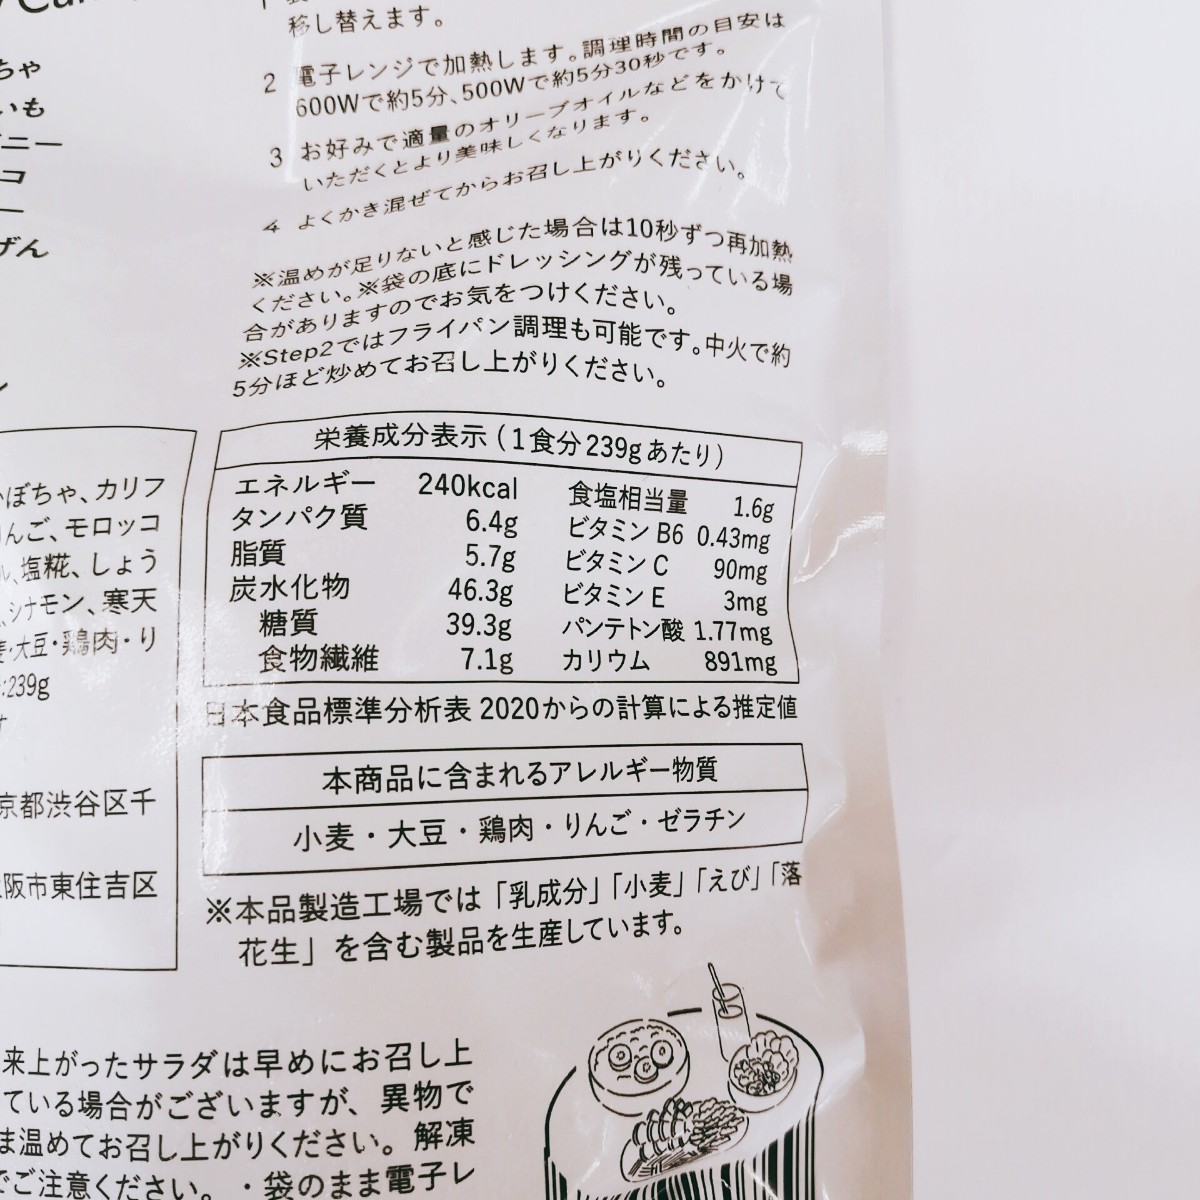 移し替えます。
2 電子レンジで加熱します。調理時間の目安は
600Wで約5分、500Wで約5分30秒です。
3 お好みで適量のオリーブオイルなどをかけて
いただくとより美味しくなります。
4 よくかき混ぜてからお召し上がりください。
※温めが足りないと感じた場合は10秒ずつ再加熱
ください。※袋の底にドレッシングが残っている場
合がありますのでお気をつけください。
※Step2ではフライパン調理も可能です。中火で約
5分ほど炒めてお召し上がりください。
ちゃ
いも
ニー
コ
ー
げん
ぼちゃ、カリフ
んご、モロッコ
ル、塩糀、しょう
シナモン、寒天
・大豆・鶏肉・り
:239g
京都渋谷区千
阪市東住吉区
栄養成分表示（1食分239gあたり）
エネルギー 240kcal
タンパク質 6.4g
脂質 5.7g
炭水化物 46.3g
糖質 39.3g
食物繊維 7.1g
食塩相当量 1.6g
ビタミン B6 0.43mg
ビタミン C 90mg
ビタミン E 3mg
パンテトン酸 1.77mg
カリウム 891mg
日本食品標準分析表 2020からの計算による推定値
本商品に含まれるアレルギー物質
小麦・大豆・鶏肉・りんご・ゼラチン
※本品製造工場では「乳成分」「小麦」「えび」「落
花生」を含む製品を生産しています。
来上がったサラダは早めにお召し上
ている場合がございますが、異物で
ま温めてお召し上がりください。解凍
でご注意ください。・袋のまま電子レ